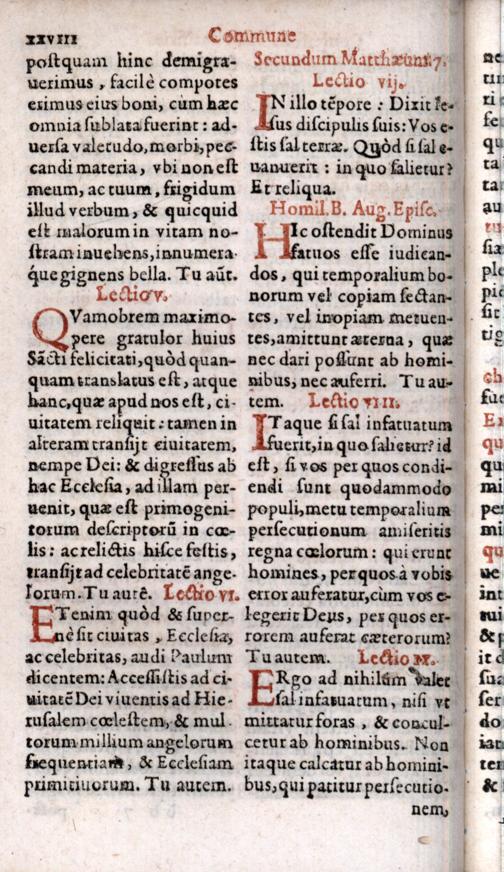 xxviii
Commune
postquam hinc demigra-
uerimus, facilè compotes
erimus eius boni, cùm hæc
omnia sublata fuerint: ad-
uersa valetudo, morbi, pec-
candi materia, vbi non est
meum, ac tuum, frigidum
illud verbum, & quicquid
est malorum in vitam no-
stram inuehens, innumera-
q́ue gignens bella. Tu aũt.
Lectio v.
QVamobrem maximo-
pere gratulor huius
Sãcti felicitati, quòd quan-
quam translatus est, atque
hanc, quæ apud nos est, ci-
uitatem reliquit: tamen in
alteram transijt ciuitatem,
nempe Dei: & digressus ab
hac Ecclesia, ad illam per-
uenit, quæ est primogeni-
torum descriptorũ in cœ-
lis: ac relictis hisce festis,
transijt ad celebritatẽ ange-
lorum. Tu autẽ. Lectio vi.
ETenim quòd & super-
nè sit ciuitas, Ecclesia,
ac celebritas, audi Paulum
dicentem: Accessistis ad ci-
uitatẽ Dei viuentis ad Hie-
rusalem cœlestem, & mul-
torum millium angelorum
frequentiam, & Ecclesiam
primitiuorum. Tu autem.
Secundum Matthæum. 7.
Lectio vij.
IN illo tẽpore: Dixit Ie-
sus discipulis suis: Vos e-
stis sal terræ. Quòd si sal e-
uanuerit: in quo salietur?
Et reliqua.
Homil. B. Aug. Episc.
HIc ostendit Dominus
fatuos esse iudican-
dos, qui temporalium bo-
norum vel copiam sectan-
tes, vel inopiam metuen-
tes, amittunt æterna, quæ
nec dari possunt ab homi-
nibus, nec auferri. Tu au-
tem. Lectio viii.
ITaque si sal infatuatum
fuerit, in quo salietur? id
est, si vos per quos condi-
endi sunt quodammodo
populi, metu temporalium
persecutionum amiseritis
regna cœlorum: qui erunt
homines, per quos à vobis
error auferatur, cùm vos e-
legerit Deus, per quos er-
rorem auferat cæterorum?
Tu autem. Lectio ix.
ERgo ad nihilũm valet
sal infatuatum, nisi vt
mittatur foras, & concul-
cetur ab hominibus. Non
itaque calcatur ab homini-
bus, qui patitur persecutio-
nem,